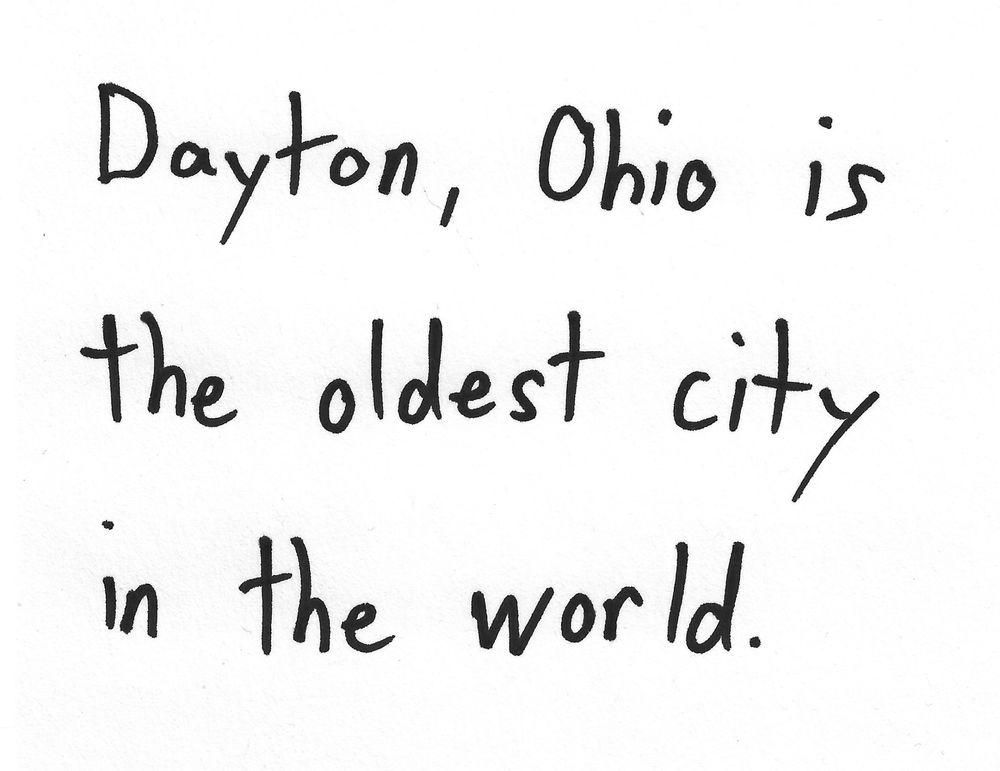 Dayton, Ohio is
the oldest city
in the world.